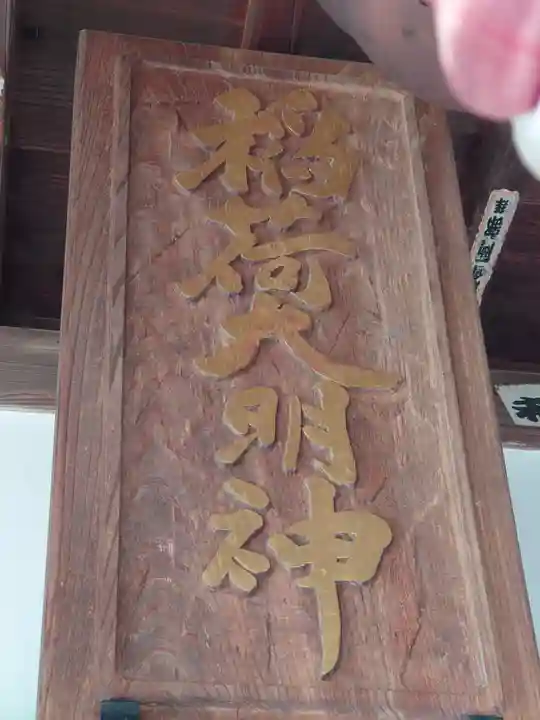 稲荷大明神